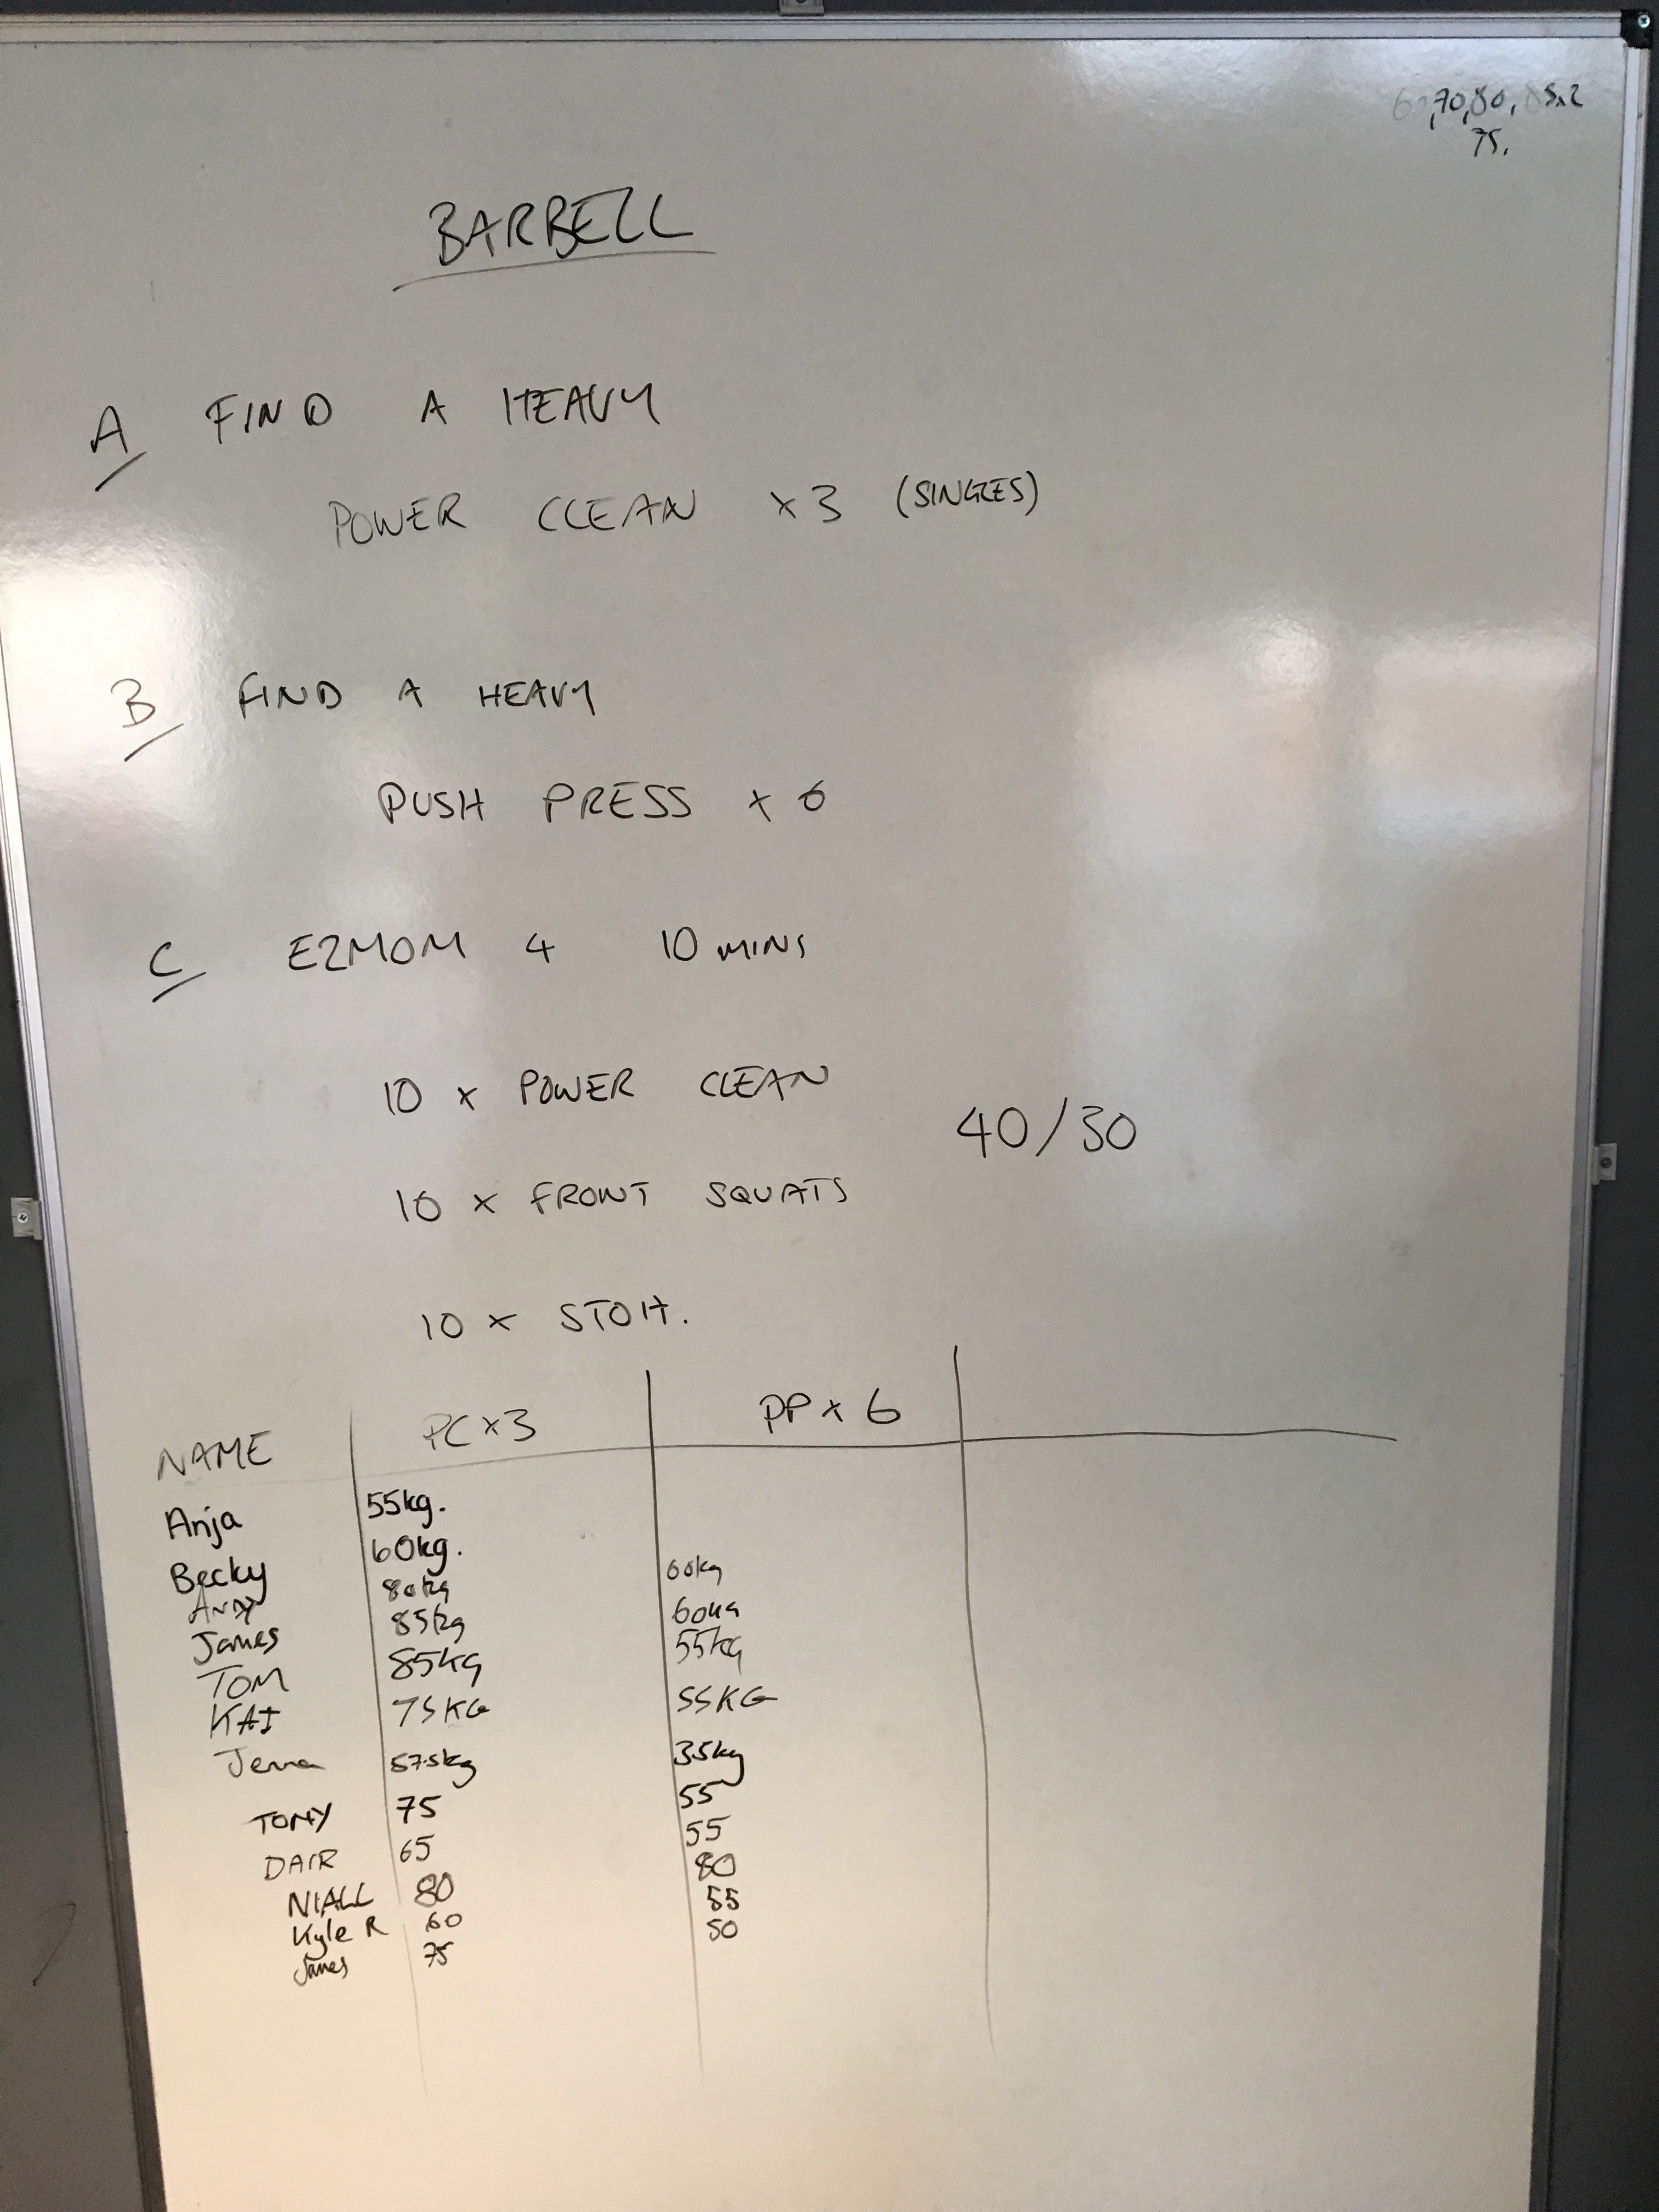 ,70,80, 85x2
75.
BARBELL
A FIND A HEAVY
POWER CLEAN x3 (SINGLES)
B FIND A HEAVY
PUSH PRESS x 6
C E2MOM 4 10 MINS
10 x POWER CLEAN
40/30
10 x FRONT SQUATS
10 x STOH.
NAME PC x 3 PP x 6
Anja 55kg.
Becky 60kg.
ANDY 80kg 60kg
James 85kg 60kg
TOM 85kg 55kg
KAI 75KG 55KG
Jenna 57.5kg 35kg
TONY 75 55
DAIR 65 55
NIALL 80 80
Kyle R 60 55
James 75 50